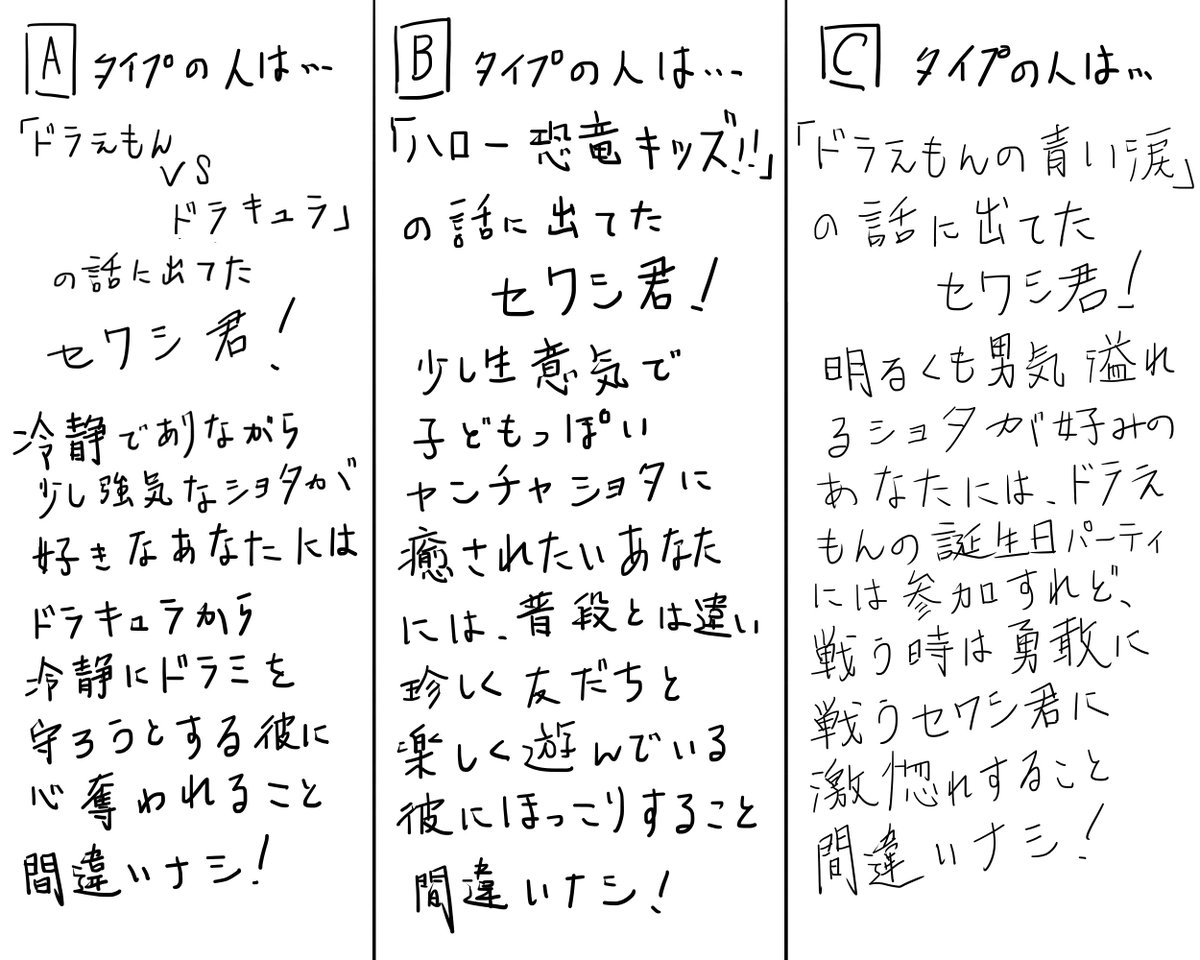 A タイプの人は…
「ドラえもん
VS
ドラキュラ」
の話に出てた
セワシ君!
冷静でありながら
少し強気なショタが
好きなあなたには
ドラキュラから
冷静にドラミを
守ろうとする彼に
心奪われること
間違いナシ!
B タイプの人は…
「ハロー恐竜キッズ!!」
の話に出てた
セワシ君!
少し生意気で
子どもっぽい
ヤンチャショタに
癒されたいあなた
には、普段とは違い
珍しく友だちと
楽しく遊んでいる
彼にほっこりすること
間違いナシ!
C タイプの人は…
「ドラえもんの青い涙」
の話に出てた
セワシ君!
明るくも男気溢れ
るショタが好みの
あなたには、ドラえ
もんの誕生日パーティ
には参加すれど、
戦う時は勇敢に
戦うセワシ君に
激惚れすること
間違いナシ!